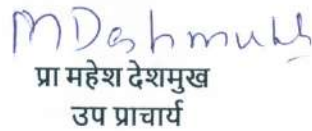 MDeshmukh
प्रा महेश देशमुख
उप प्राचार्य